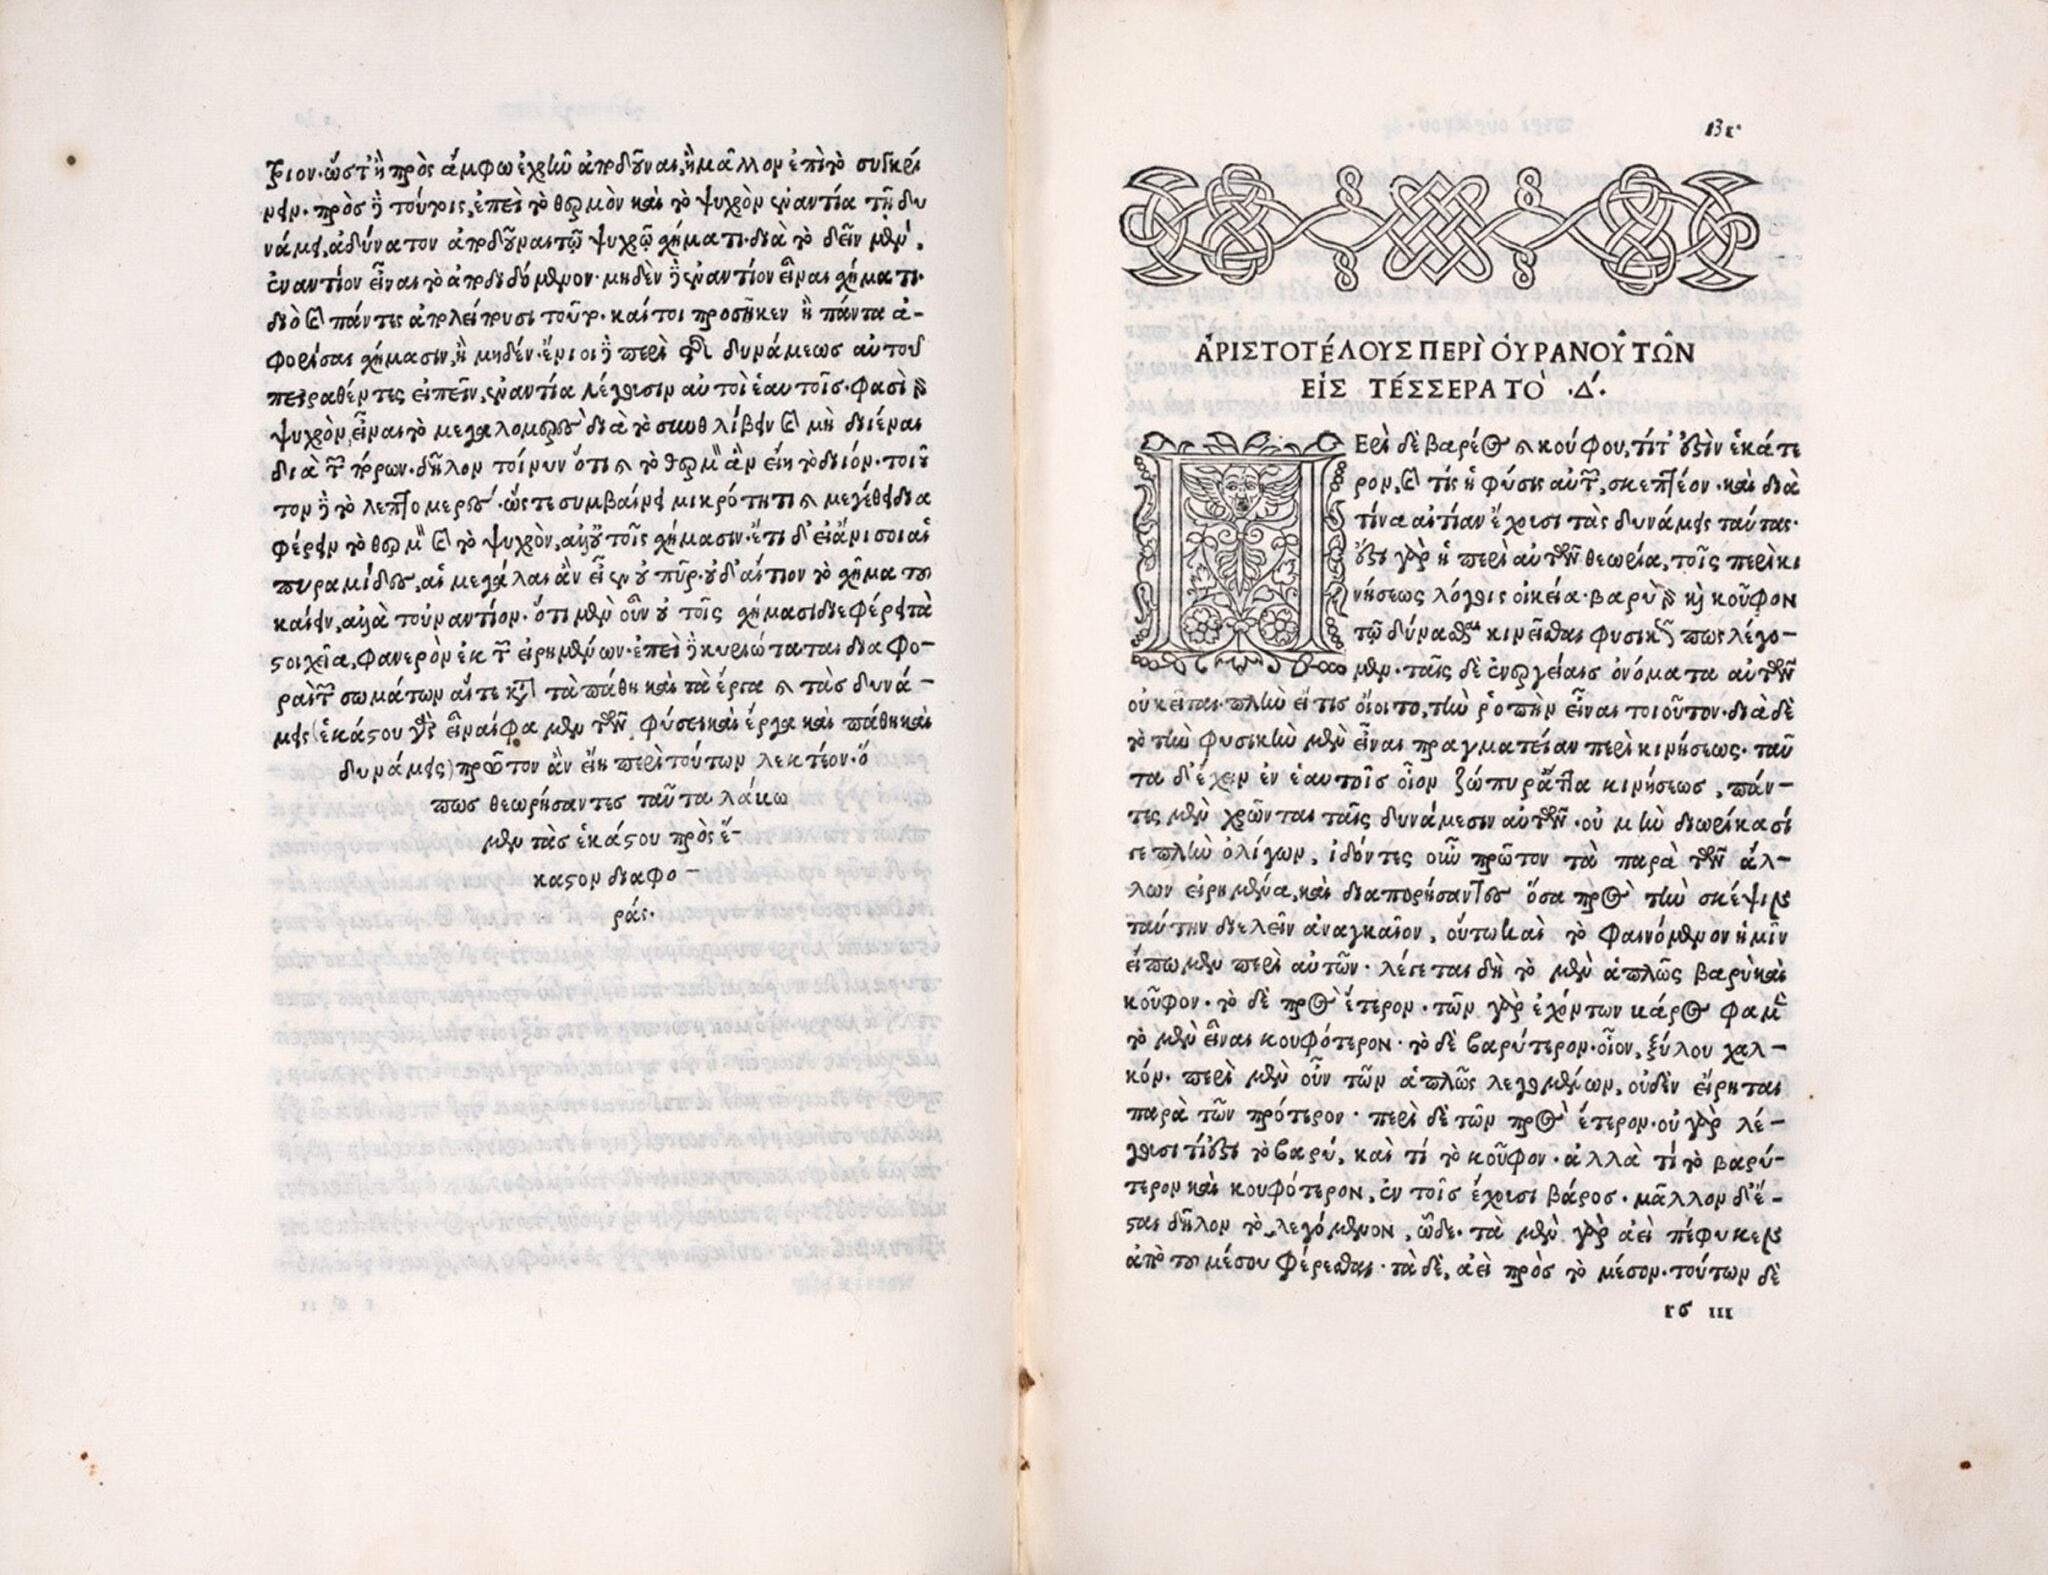 ξιον· ὥστ' ἢ πρὸς ἄμφω ἐχρῆν ἀποδοῦναι, ἢ μᾶλλον ἐπὶ τὸ συγκρί
νειν· πρὸς δὲ τούτοις, ἐπεὶ τὸ θερμὸν καὶ τὸ ψυχρὸν ἐναντία τῇ δυ
νάμει, ἀδύνατον ἀποδοῦναι τῷ ψυχρῷ σχῆμά τι· διὰ τὸ δεῖν μὲν
ἐναντίον εἶναι τὸ ἀποδιδόμενον· μηδὲν δὲ ἐναντίον εἶναι σχήματι·
διὸ καὶ πάντες ἀπολελοίπασι τοῦτο· καίτοι προσῆκεν ἢ πάντα ἀ-
φορίσαι σχήμασιν, ἢ μηδέν· ἔνιοι δὲ περὶ τῆς δυνάμεως αὐτοῦ
πειραθέντες εἰπεῖν, ἐναντία λέγουσιν αὐτοὶ ἑαυτοῖς· φασὶ γὰρ
ψυχρὸν εἶναι τὸ μεγαλομερὲς διὰ τὸ συνθλίβειν καὶ μὴ διιέναι
διὰ τῶν πόρων· δῆλον τοίνυν ὅτι καὶ τὸ θερμὸν ἂν εἴη τὸ διιόν· τοιοῦ
τον δὲ τὸ λεπτομερές· ὥστε συμβαίνει μικρότητι καὶ μεγέθει δια
φέρειν τὸ θερμὸν καὶ τὸ ψυχρὸν, ἀλλ' οὐ τοῖς σχήμασιν· ἔτι δ' εἰ ἄνισοι αἱ
πυραμίδες, αἱ μεγάλαι ἂν εἶεν οὐ πῦρ· οὐδ' αἴτιον τὸ σχῆμα τοῦ
καίειν, ἀλλὰ τοὐναντίον· ὅτι μὲν οὖν οὐ τοῖς σχήμασι διεφέρει τὰ
στοιχεῖα, φανερὸν ἐκ τῶν εἰρημένων· ἐπεὶ δὲ κυριώταται διαφο-
ραὶ τῶν σωμάτων αἵ τε κατὰ τὰ πάθη καὶ τὰ ἔργα καὶ τὰς δυνά-
μεις (ἑκάστου γὰρ εἶναί φαμεν τῶν φύσει καὶ ἔργα καὶ πάθη καὶ
δυνάμεις) πρῶτον ἂν εἴη περὶ τούτων λεκτέον· ὅ
πως θεωρήσαντες ταῦτα λάβω
μεν τὰς ἑκάστου πρὸς ἕ-
καστον διαφο-
ράς.
ἈΡΙΣΤΟΤΈΛΟΥΣ ΠΕΡῚ ΟΥ̓ΡΑΝΟΥ͂ ΤΩ͂Ν
ΕἸΣ ΤΈΣΣΕΡΑ ΤῸ ·Δ'.
ΠΕρὶ δὲ βαρέος καὶ κούφου, τί τ' ἐστὶν ἑκάτε
ρον, καὶ τίς ἡ φύσις αὐτῶν, σκεπτέον· καὶ διὰ
τίνα αἰτίαν ἔχουσι τὰς δυνάμεις ταύτας·
ἔστι γὰρ ἡ περὶ αὐτῶν θεωρία, τοῖς περὶ κι
νήσεως λόγοις οἰκεία· βαρὺ γὰρ καὶ κοῦφον
τῷ δύνασθαι κινεῖσθαι φυσικῶς πως λέγο-
μεν· ταῖς δὲ ἐνεργείαις ὀνόματα αὐτῶν
οὐ κεῖται· πλὴν εἴ τις οἴοιτο, τὴν ῥοπὴν εἶναι τοιοῦτον· διὰ δὲ
τὸ τὴν φυσικὴν μὲν εἶναι πραγματείαν περὶ κινήσεως· ταῦ
τα δ' ἔχειν ἐν ἑαυτοῖς οἷον ζώπυρ' ἄττα κινήσεως, πάν-
τες μὲν χρῶνται ταῖς δυνάμεσιν αὐτῶν· οὐ μὴν διωρίκασί
γε πλὴν ὀλίγων, ἰδόντες οὖν πρῶτον τὰ παρὰ τῶν ἄλ-
λων εἰρημένα, καὶ διαπορήσαντες ὅσα πρὸς τὴν σκέψιν
ταύτην διελεῖν ἀναγκαῖον, οὕτω καὶ τὸ φαινόμενον ἡμῖν
εἴπωμεν περὶ αὐτῶν· λέγεται δὴ τὸ μὲν ἁπλῶς βαρὺ καὶ
κοῦφον· τὸ δὲ πρὸς ἕτερον· τῶν γὰρ ἐχόντων βάρος φαμὲν
τὸ μὲν εἶναι κουφότερον· τὸ δὲ βαρύτερον· οἷον, ξύλου χαλ-
κόν· περὶ μὲν οὖν τῶν ἁπλῶς λεγομένων, οὐδὲν εἴρηται
παρὰ τῶν πρότερον· περὶ δὲ τῶν πρὸς ἕτερον· οὐ γὰρ λέ-
γουσι τί ἐστι τὸ βαρύ, καὶ τί τὸ κοῦφον· ἀλλὰ τί τὸ βαρύ-
τερον καὶ κουφότερον, ἐν τοῖς ἔχουσι βάρος· μᾶλλον δ' ἔ-
σται δῆλον τὸ λεγόμενον, ὧδε· τὰ μὲν γὰρ ἀεὶ πέφυκεν
ἀπὸ τοῦ μέσου φέρεσθαι· τὰ δὲ, ἀεὶ πρὸς τὸ μέσον· τούτων δὲ